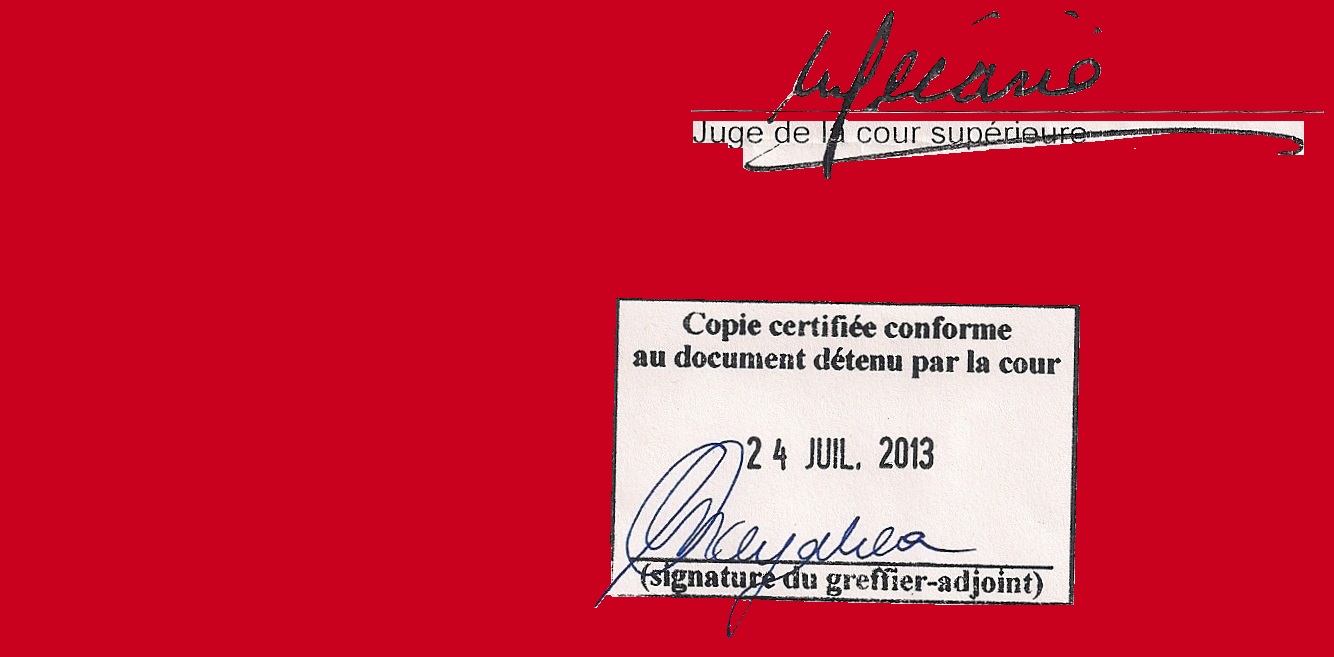 Juge de la cour supérieure
Copie certifiée conforme
au document détenu par la cour
24 JUIL. 2013
(signature du greffier-adjoint)